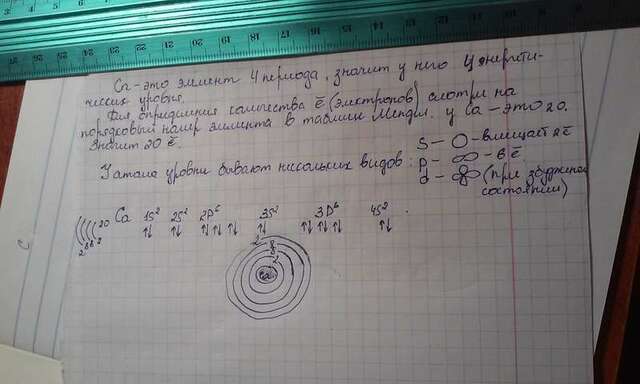 Ca - это элемент 4 периода, значит у него 4 энергети-
ческих уровня.
Для определения количества ē (электронов) смотри на
порядковый номер элемента в таблице Мендел. у Ca - это 20.
Значит 20 ē.
У атома уровни бывают нескольких видов: S - вмещает 2ē
p - 6 ē
d - (при збужденом
состоянии)
20 Ca 1S² 2S² 2P⁶ 3S² 3D⁶ 4S²
2 8 8 2
↑↓ ↑↓ ↑↓ ↑↓ ↑↓ ↑↓ ↑↓ ↑↓ ↑↓ ↑↓
2
8
8
2
Ca